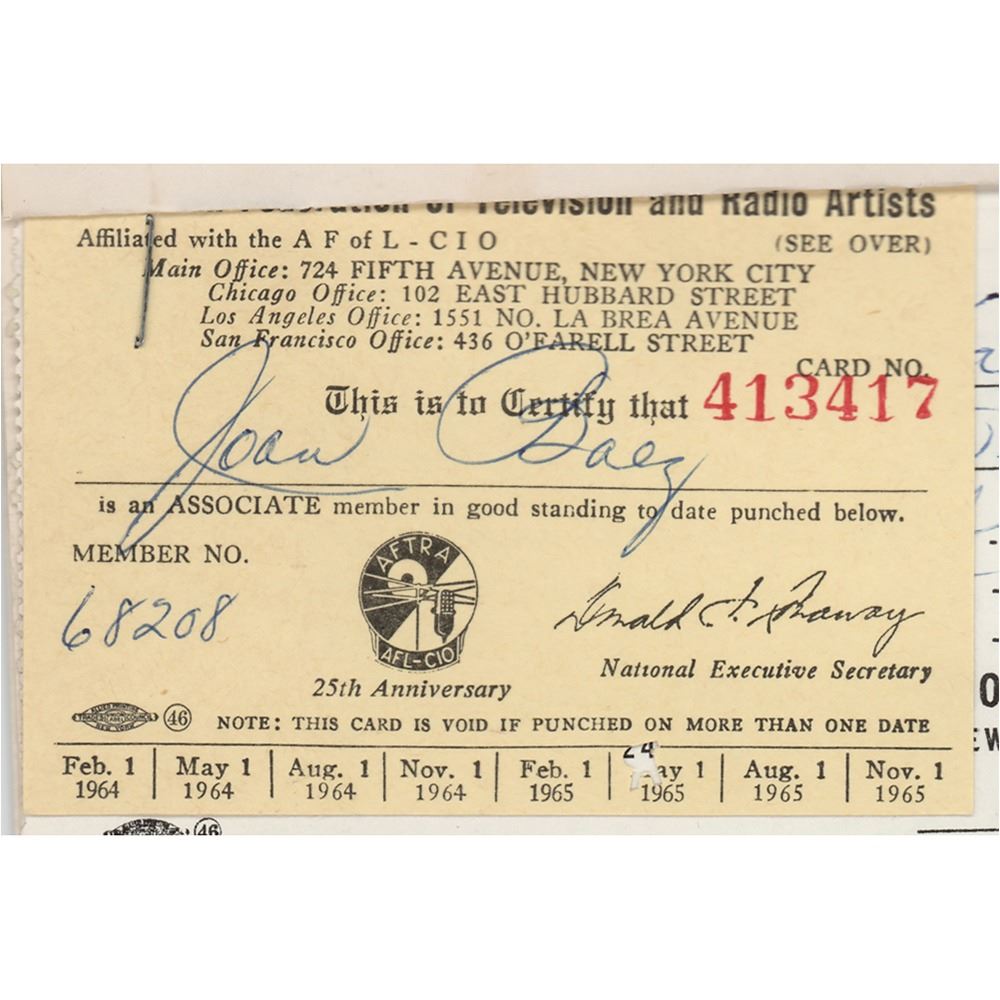 Federation of Television and Radio Artists
Affiliated with the A F of L - C I O (SEE OVER)
Main Office: 724 FIFTH AVENUE, NEW YORK CITY
Chicago Office: 102 EAST HUBBARD STREET
Los Angeles Office: 1551 NO. LA BREA AVENUE
San Francisco Office: 436 O'FARELL STREET
CARD NO.
This is to Certify that 413417
Joan Baez
is an ASSOCIATE member in good standing to date punched below.
MEMBER NO.
68208
AFTRA
AFL-CIO
25th Anniversary
Donald F. Conaway
National Executive Secretary
ALLIED PRINTING
TRADES UNION LABEL COUNCIL
NEW YORK
46
NOTE: THIS CARD IS VOID IF PUNCHED ON MORE THAN ONE DATE
24
Feb. 1 May 1 Aug. 1 Nov. 1 Feb. 1 ay 1 Aug. 1 Nov. 1
1964 1964 1964 1964 1965 1965 1965 1965
46